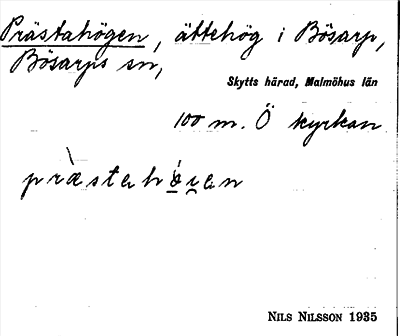 Prästahögen, ättehög i Bösarp,
Bösarps sn,
Skytts härad, Malmöhus län
100 m. Ö kyrkan
NILS NILSSON 1935